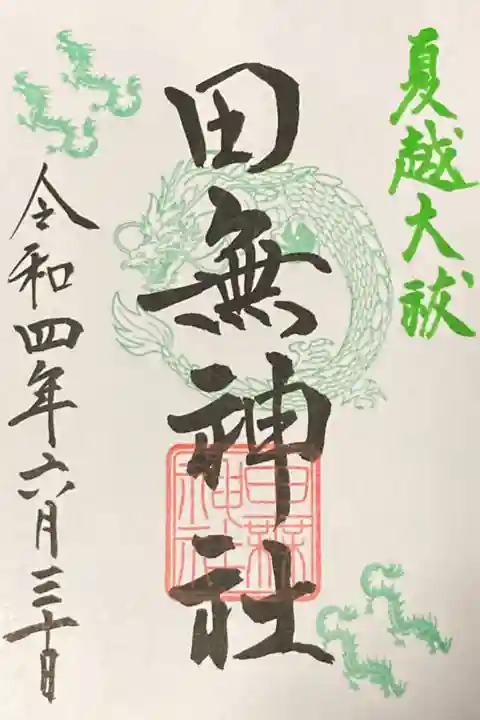 夏越大祓
田無神社
田無神社
令和四年六月三十日